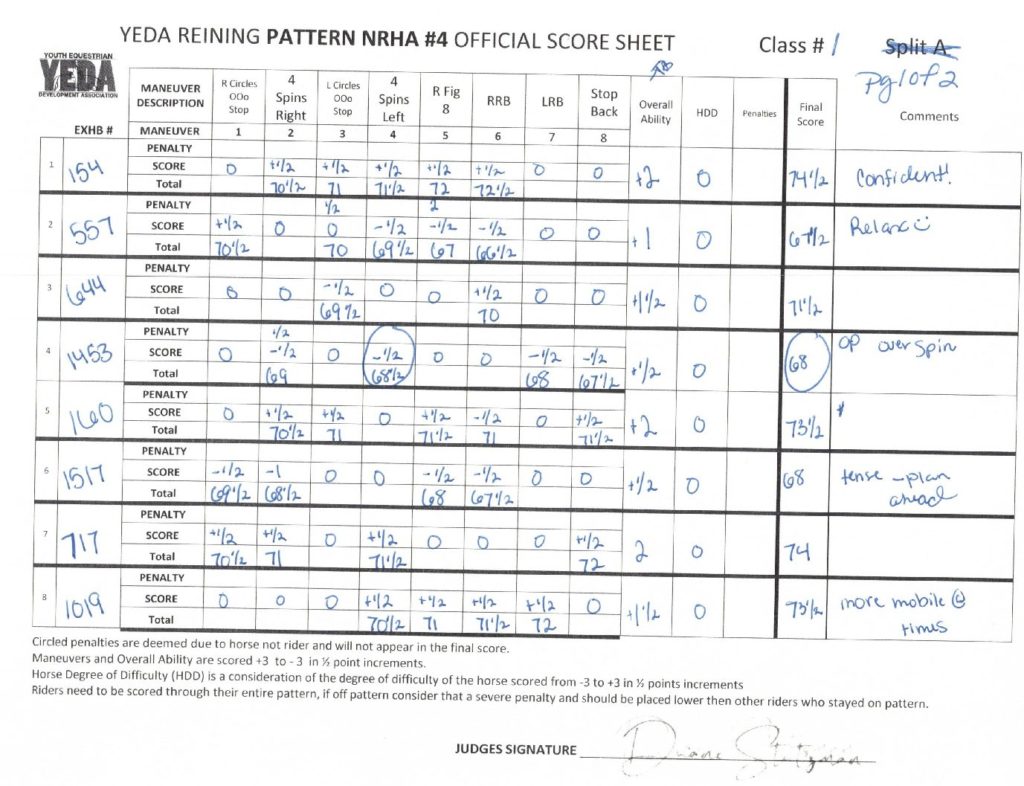 YEDA REINING PATTERN NRHA #4 OFFICIAL SCORE SHEET Class # 1 Split A
YOUTH EQUESTRIAN
YEDA
DEVELOPMENT ASSOCIATION
Pg 1 of 2
MANEUVER DESCRIPTION R Circles OOo Stop 4 Spins Right L Circles OOo Stop 4 Spins Left R Fig 8 RRB LRB Stop Back Overall Ability HDD Penalties Final Score Comments
EXHB # MANEUVER 1 2 3 4 5 6 7 8
PENALTY
1 154 SCORE 0 +1/2 +1/2 +1/2 +1/2 +1/2 0 0 +2 0 74 1/2 Confident!
Total 70 1/2 71 71 1/2 72 72 1/2
PENALTY 1/2 2
2 557 SCORE +1/2 0 0 -1/2 -1/2 -1/2 0 0 +1 0 67 1/2 Relax ☺
Total 70 1/2 70 69 1/2 67 66 1/2
PENALTY
3 644 SCORE 0 0 -1/2 0 0 +1/2 0 0 +1 1/2 0 71 1/2
Total 69 1/2 70
PENALTY 1/2
4 1453 SCORE 0 -1/2 0 -1/2 0 0 -1/2 -1/2 +1/2 0 68 OP over spin
Total 69 68 1/2 68 67 1/2
PENALTY
5 1660 SCORE 0 +1/2 +1/2 0 +1/2 -1/2 0 +1/2 +2 0 73 1/2
Total 70 1/2 71 71 1/2 71 71 1/2
PENALTY
6 1517 SCORE -1/2 -1 0 0 -1/2 -1/2 0 0 +1/2 0 68 tense - plan ahead
Total 69 1/2 68 1/2 68 67 1/2
PENALTY
7 717 SCORE +1/2 +1/2 0 +1/2 0 0 0 +1/2 2 0 74
Total 70 1/2 71 71 1/2 72
PENALTY
8 1019 SCORE 0 0 0 +1/2 +1/2 +1/2 +1/2 0 +1 1/2 0 73 1/2 more mobile @ times
Total 70 1/2 71 71 1/2 72
Circled penalties are deemed due to horse not rider and will not appear in the final score.
Maneuvers and Overall Ability are scored +3 to - 3 in ½ point increments.
Horse Degree of Difficulty (HDD) is a consideration of the degree of difficulty of the horse scored from -3 to +3 in ½ points increments
Riders need to be scored through their entire pattern, if off pattern consider that a severe penalty and should be placed lower then other riders who stayed on pattern.
JUDGES SIGNATURE Diane Stutzman